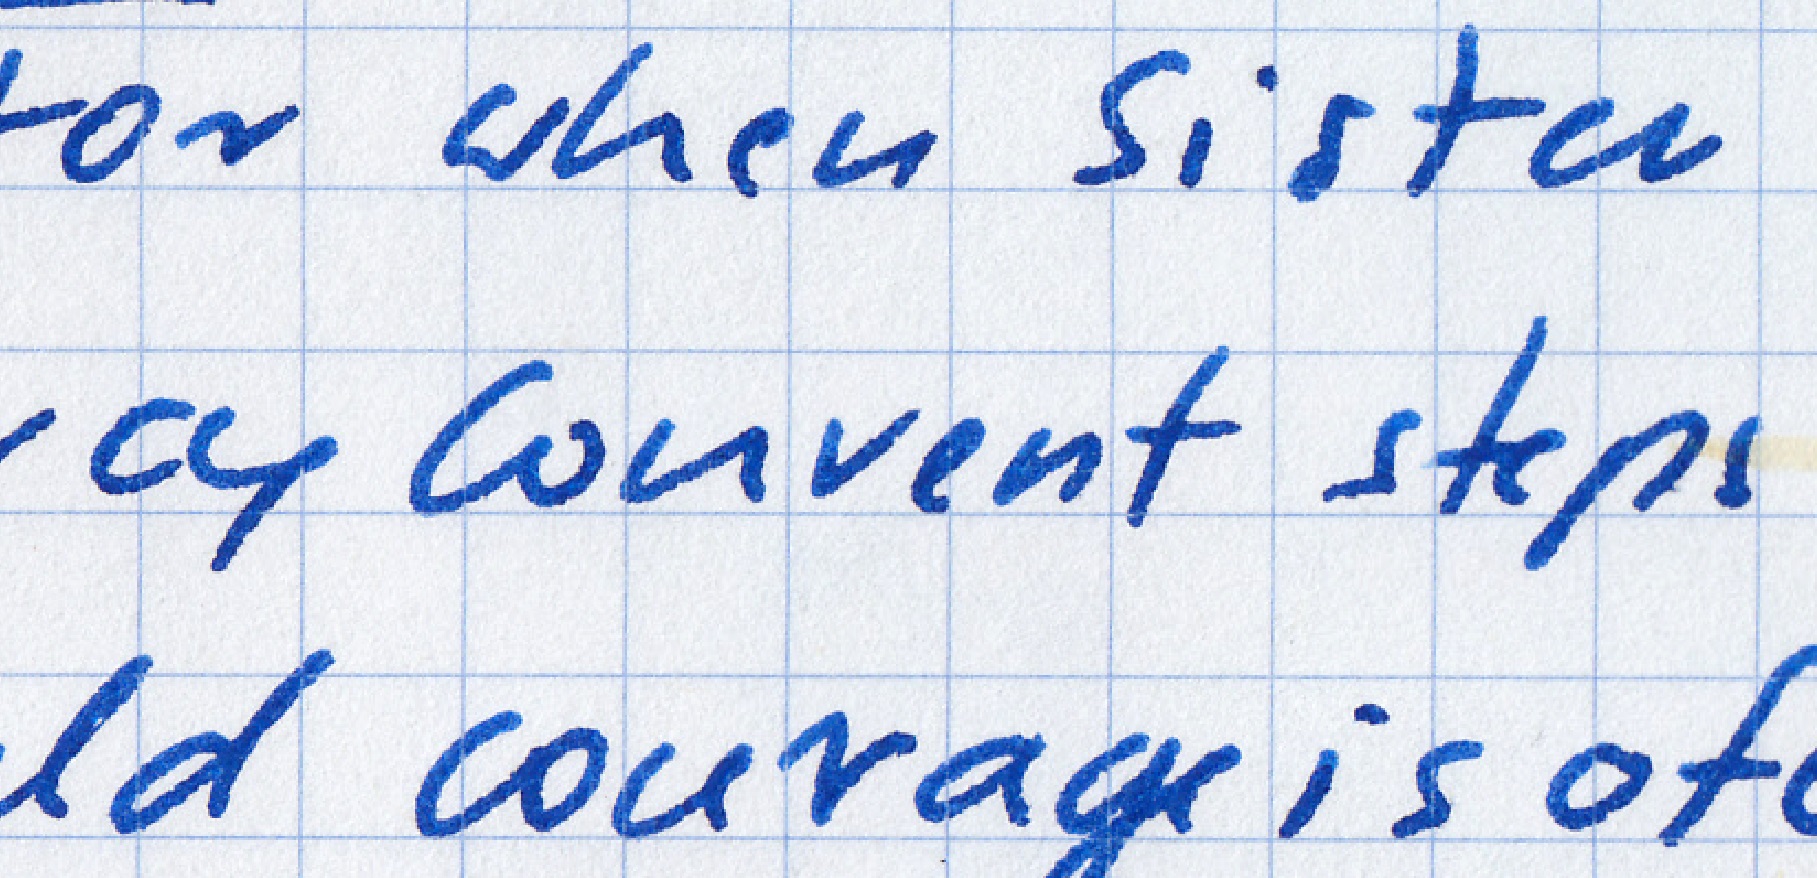 tor when Sister
cy Convent steps
ld courage is ofte